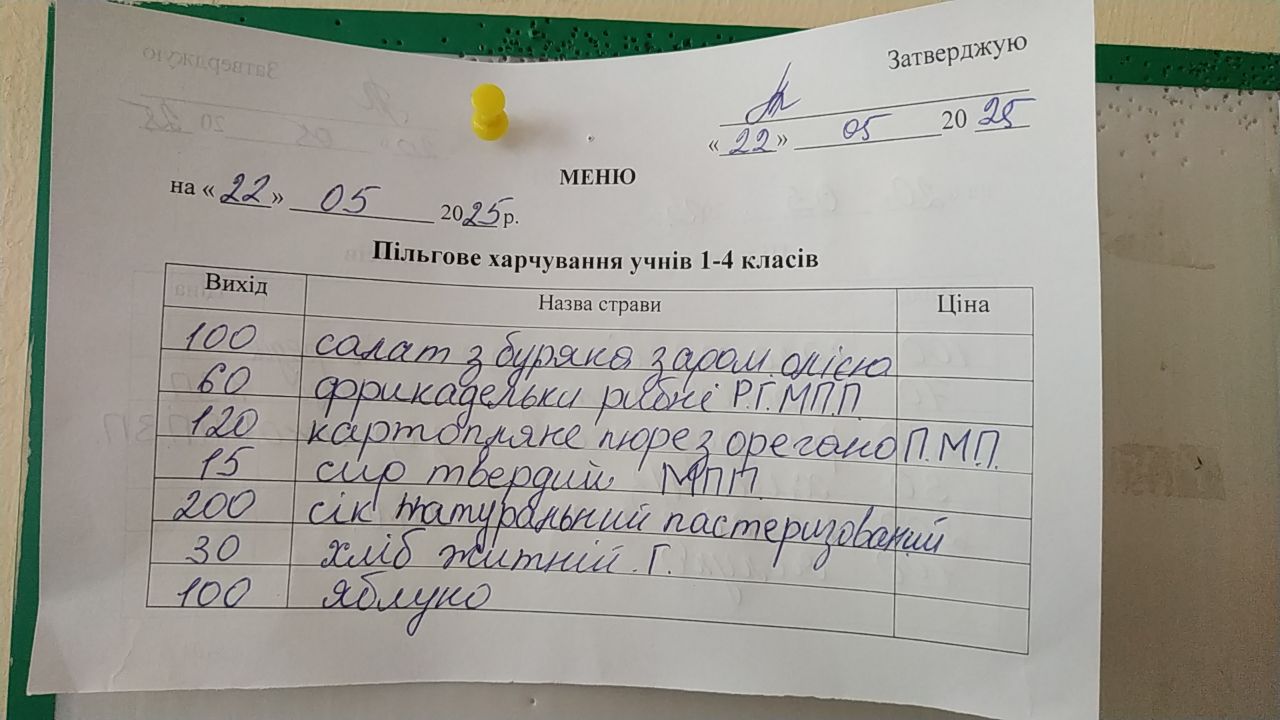 Затверджую
« 22 » 05 20 25
МЕНЮ
на « 22 » 05 2025р.
Пільгове харчування учнів 1-4 класів
Вихід Назва страви Ціна
100 салат з буряка з аром. олією
60 фрикадельки рибні Р.Г.МП.П.
120 картопляне пюре з орегано П.МП.
15 сир твердий МПП.
200 сік натуральний пастеризований
30 хліб житній. Г.
100 яблуко